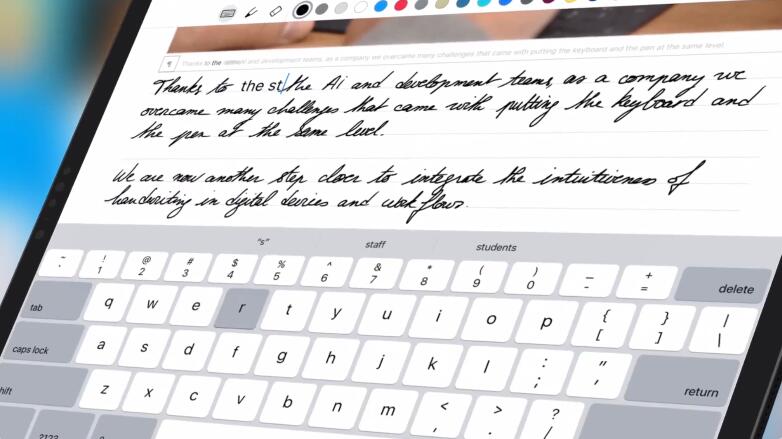 ¶ Thanks to the and development teams, as a company we overcame many challenges that came with putting the keyboard and the pen at the same level.
Thanks to the st the Ai and development teams, as a company we
overcame many challenges that came with putting the keyboard and
the pen at the same level.
We are now another step closer to integrate the intuitiveness of
handwriting in digital devices and workflows.
"s" staff students
~ ` ! 1 @ 2 # 3 $ 4 % 5 ^ 6 & 7 * 8 ( 9 ) 0 _ - + = delete
tab q w e r t y u i o p { [ } ] | \
caps lock a s d f g h j k l : ; " ' return
shift z x c v b n m < , > . ? /
.?123